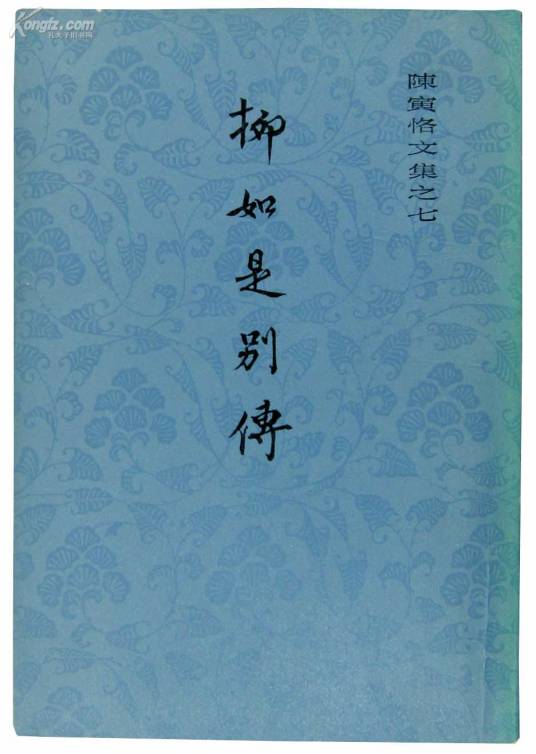 Kongfz.com
孔夫子旧书网
陳寅恪文集之七
柳如是别傳